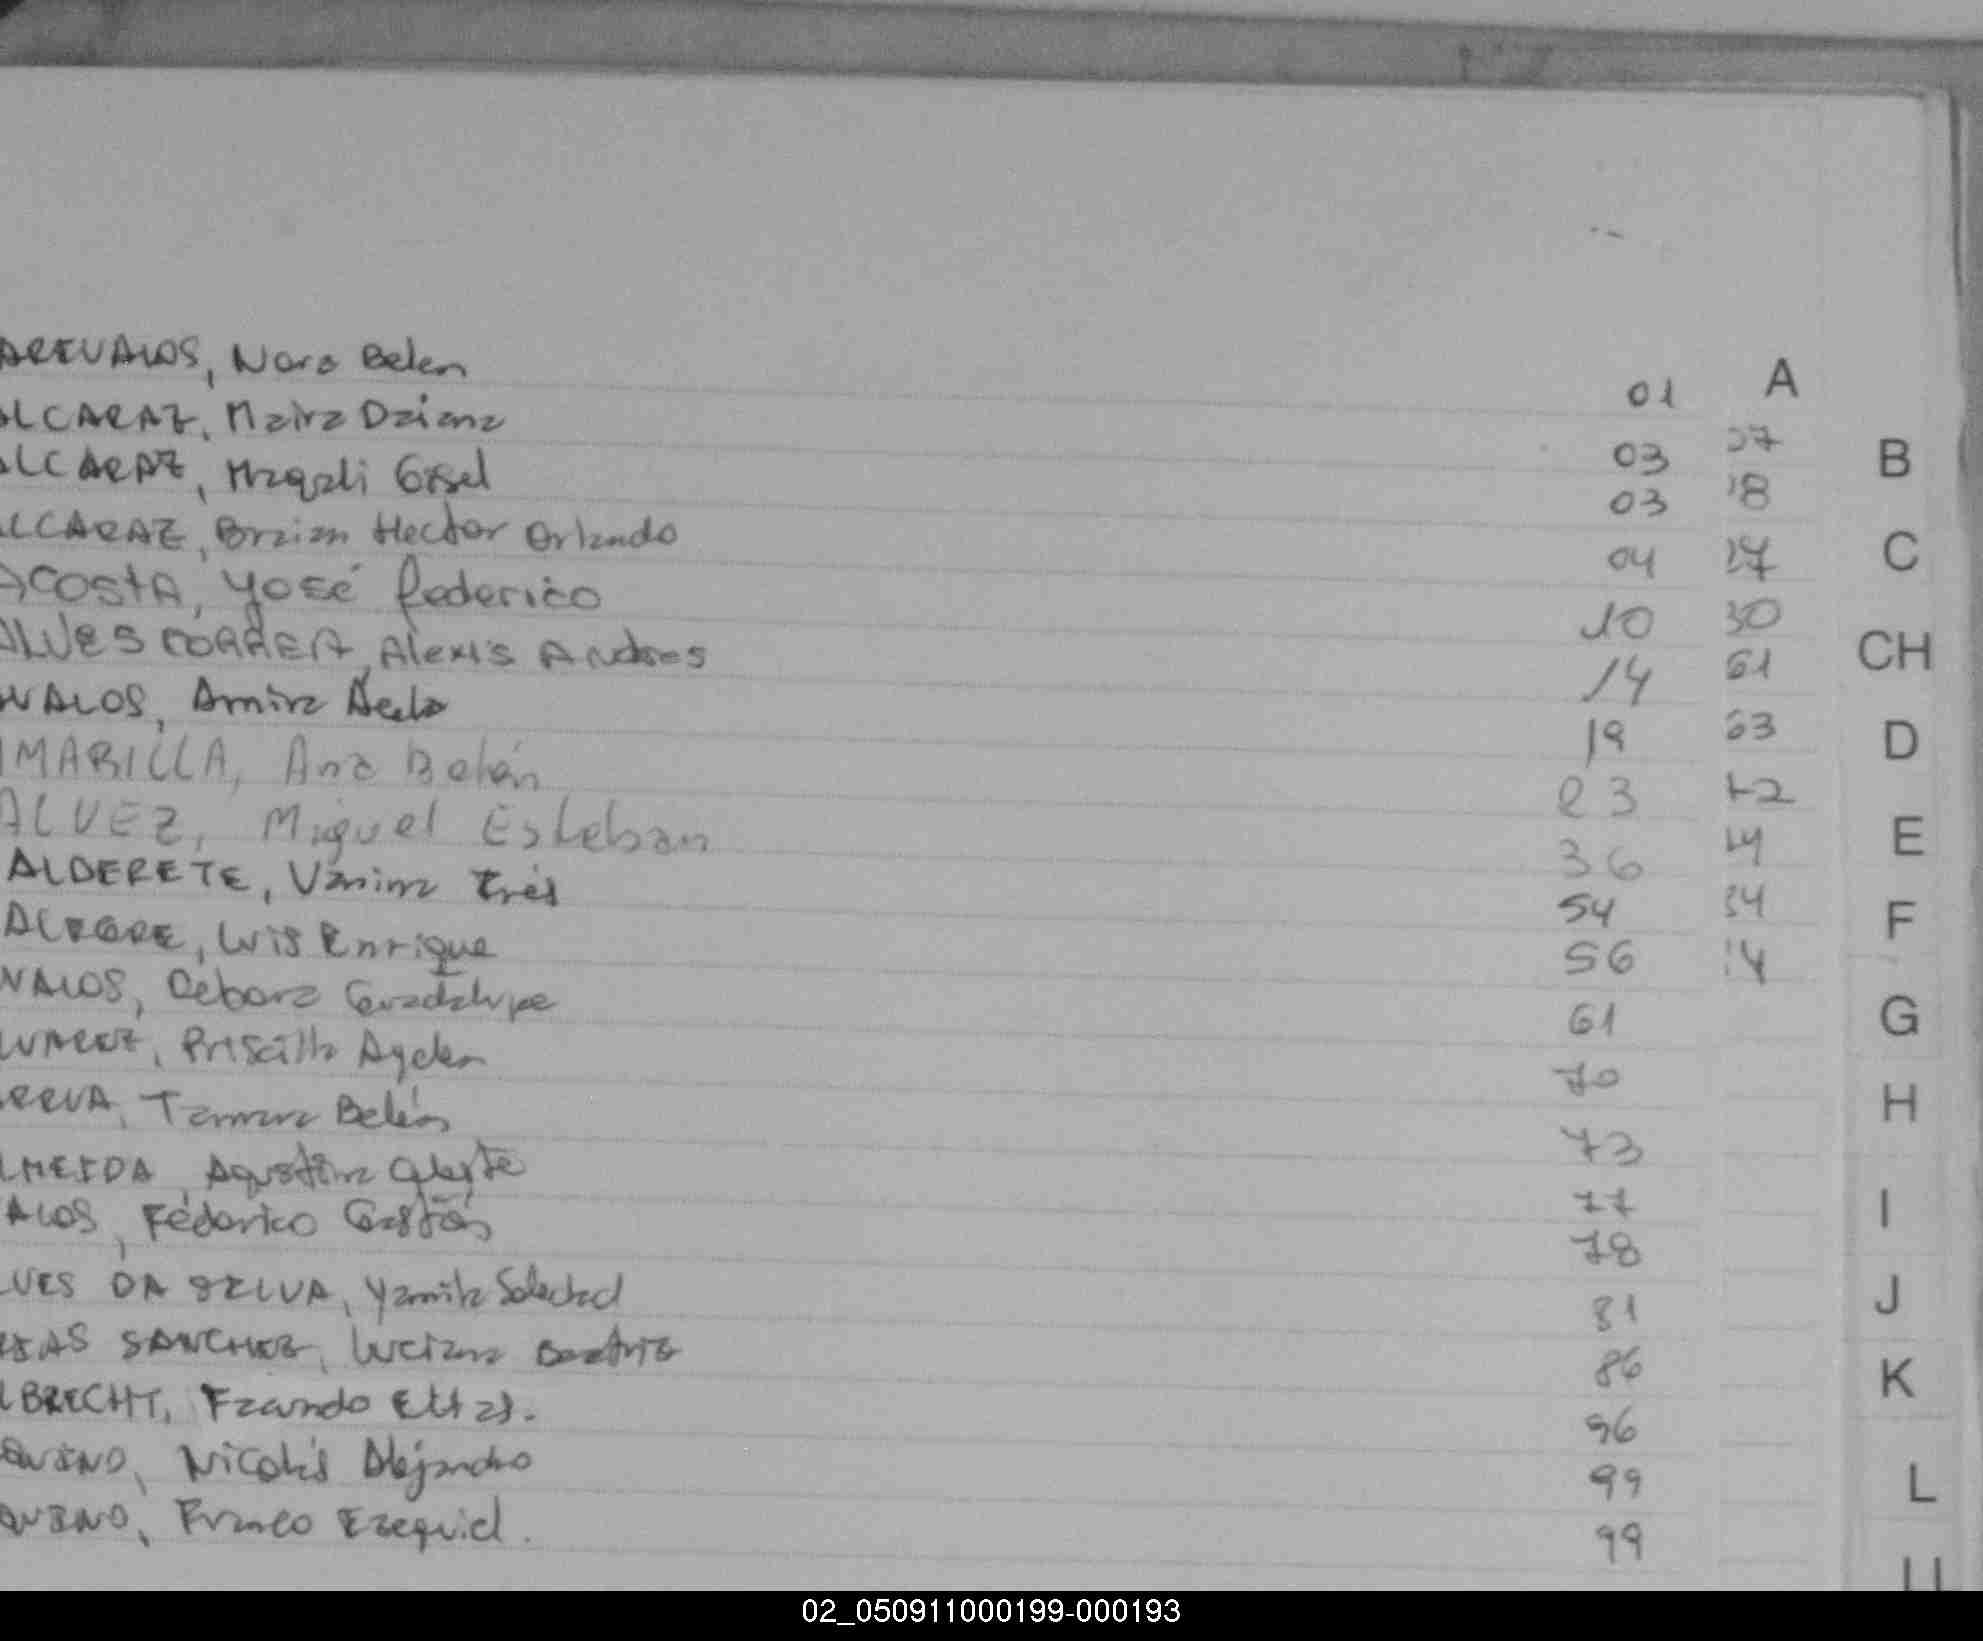 AREVALOS, Nora Belen 01
LCARAZ, Maira Daiana 03
LCARAZ, Magali Gisel 03
LCARAZ, Braian Hector Orlando 04
ACOSTA, Yosé federico 10
ALVES CORREA, Alexis Andres 14
VALOS, Amira 19
MARILLA, Ana Belén 23
ALVEZ, Miguel Esteban 36
ALDERETE, Vanina Inés 54
ALEGRE, Luis Enrique 56
VALOS, Debora Guadalupe 61
LVAREZ, Priscilla Ayelen 70
Tamara Belén 73
LMEIDA, Agustina 77
ALOS, Féderico Gastón 78
LVES DA SILVA, Yamila Soledad 81
SANCHEZ, Luciana Beatriz 86
LBRECHT, Facundo Elias. 96
QUINO, Nicolás Alejandro 99
QUINO, Franco Ezequiel. 99
A
37
18
37
30
61
63
12
14
34
14
B
C
CH
D
E
F
G
H
I
J
K
L
02_050911000199-000193